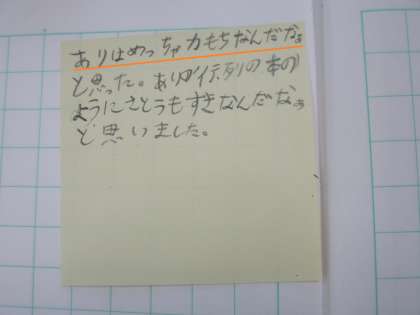 ありはめっちゃ力もちなんだなぁ
と思った。ありが行列の本の
ようにさとうもすきなんだなぁ
と思いました。